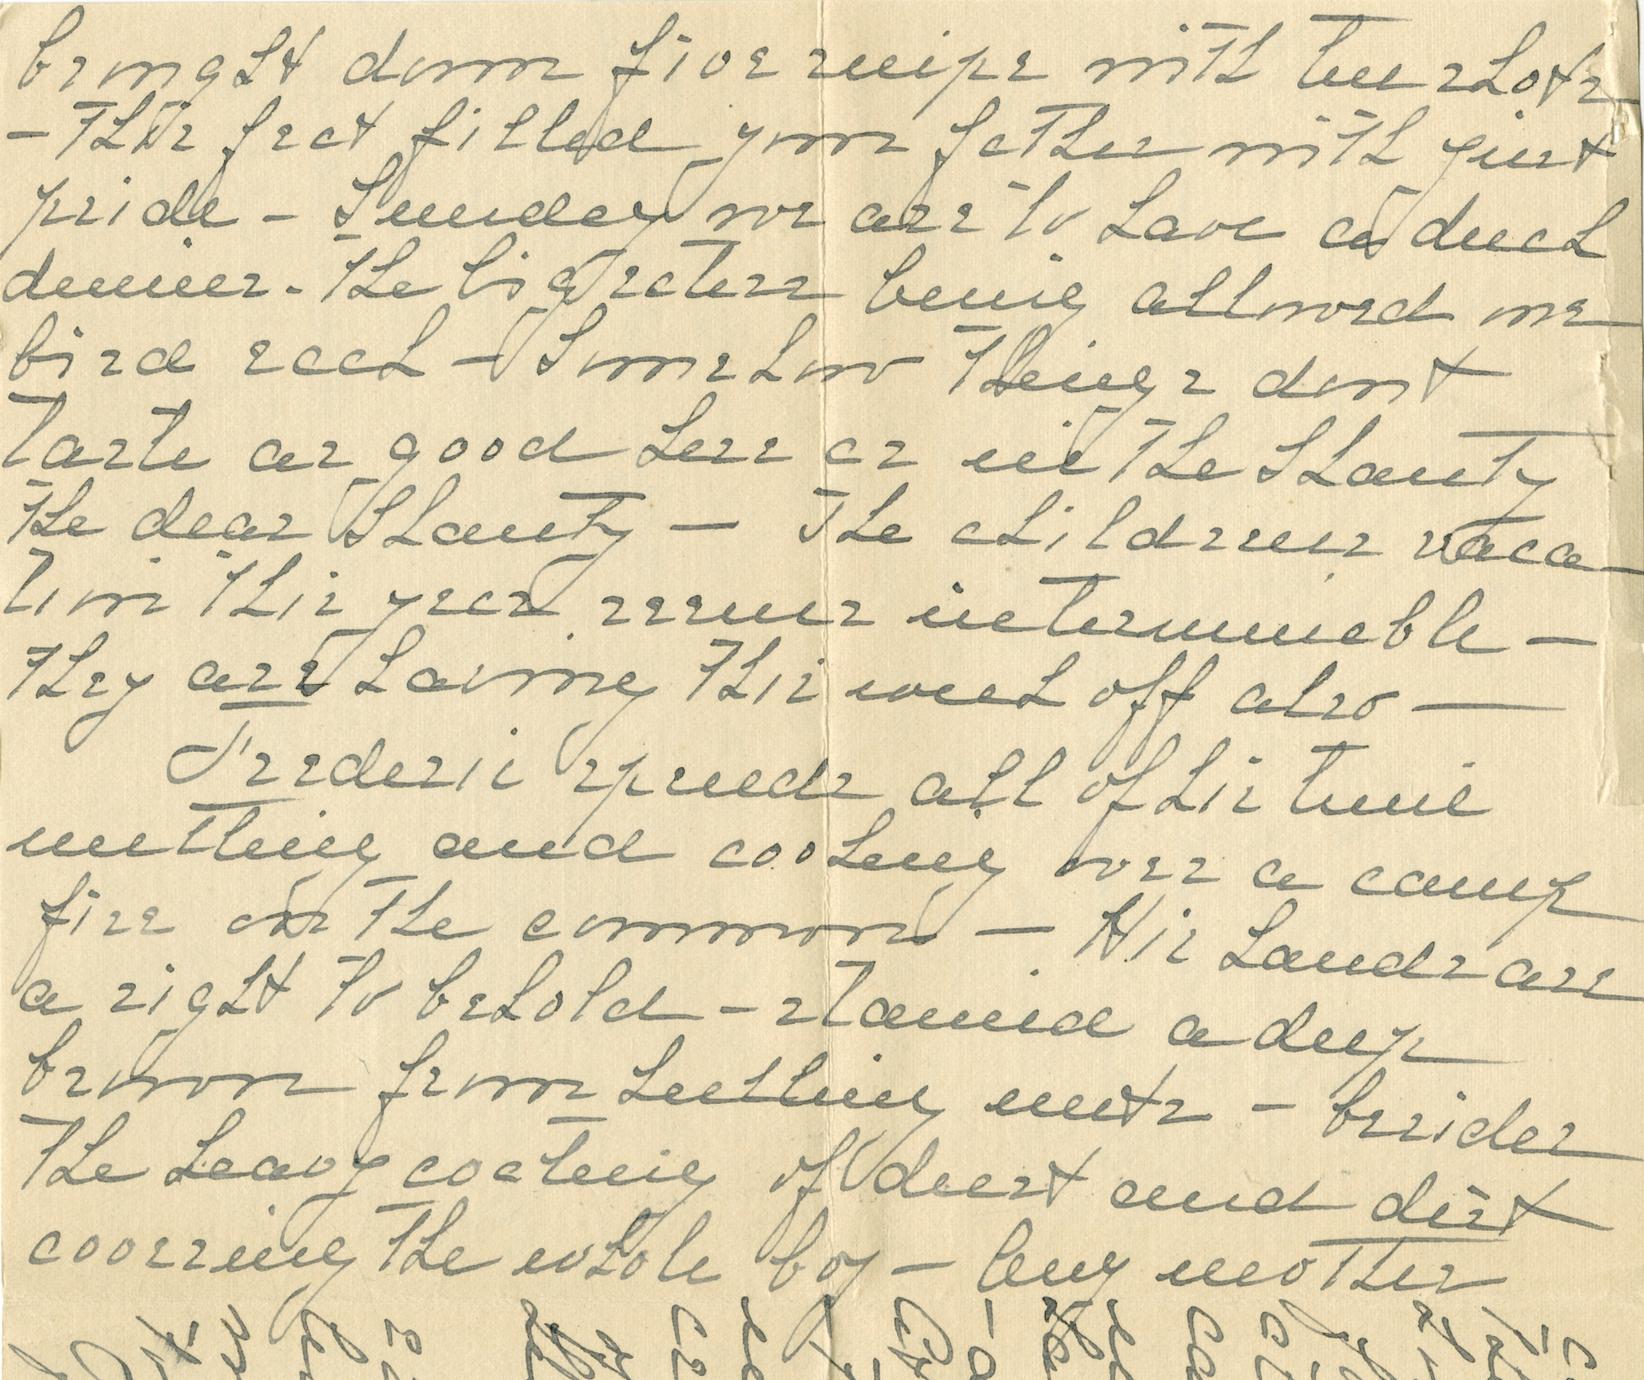 brought down five snipe with two shots
- This fact filled your father with just
pride - Sunday we are to have a duck
dinner. The big sisters being allowed one
bird each - Somehow things dont
taste as good here as in the Shanty
the dear Shanty - The childrens vaca-
tion this year seems interminable -
They are having this week off also -
Frederic spends all of his time
nutting and cooking over a camp
fire on the common - His hands are
a sight to behold - stained a deep
brown from hulling nuts - besides
the heavy coating of dust and dirt
covering the whole boy - Any mother